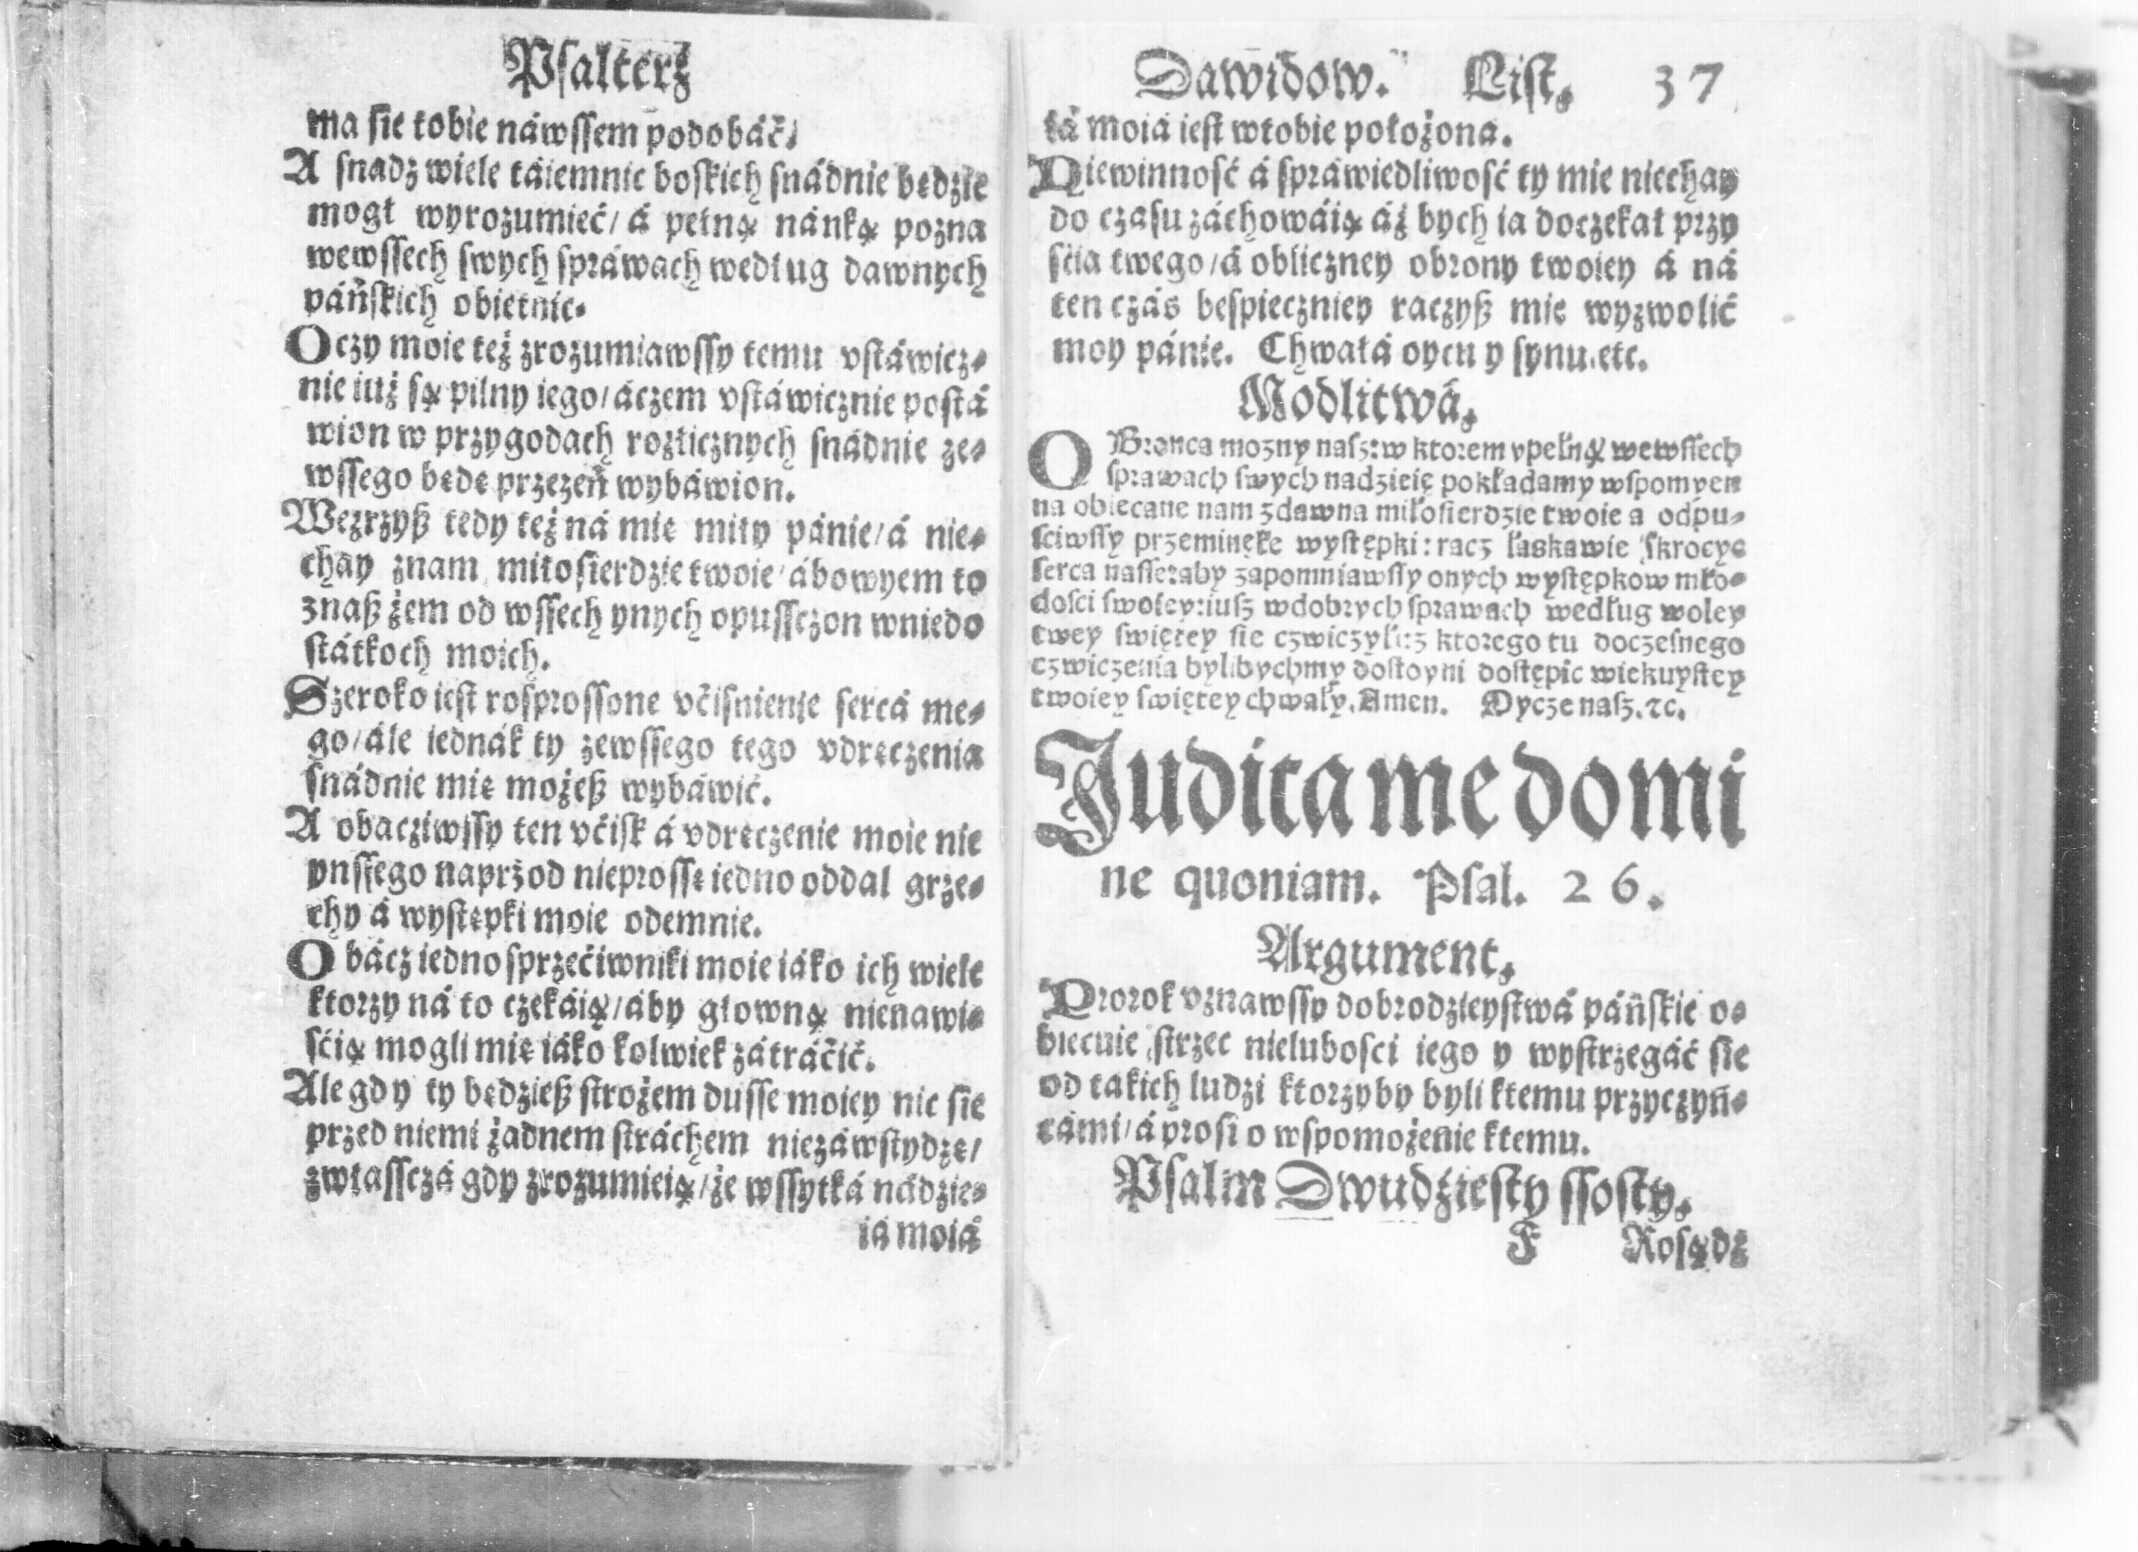 Psalterz
ma sie tobie náwssem podobáć/
A snadz wiele táiemnic boskich snádnie będzie
mogł wyrozumieć/ á pełną náuką pozna
wewssech swych spráwach według dawnych
páńskich obietnic.
Oczy moie też zrozumiawssy temu vstáwicz⸗
nie iuż są pilny iego/ áczem vstáwicznie postá
wion w przygodach rozlicznych snádnie ze⸗
wssego będę przezeń wybáwion.
Wezrzyß tedy też ná mię miły pánie/ á nie⸗
chay znam miłosierdzie twoie/ ábowyem to
znaß żem od wssech ynych opussczon wniedo
státkoch moich.
Szeroko iest rosprossone vćisnienie sercá me⸗
go/ ále iednák ty zewssego tego vdręczenia
snádnie mię możeß wybáwić.
A obacziwssy ten vćisk á vdręczenie moie nic
ynssego naprzod nieprossę iedno oddal grze⸗
chy á występki moie odemnie.
Obácz iedno sprzećiwniki moie iáko ich wiele
ktorzy ná to czekáią/ áby głowną nienawi⸗
śćią mogli mię iáko kolwiek zátráćić.
Ale gdy ty będzieß strożem dusse moiey nic sie
przed niemi żadnem stráchem niezáwstydzę/
zwłassczá gdy zrozumieią/ że wssytká nádzie⸗
ia moiá
Dawidow. List. 37
iá moiá iest wtobie położona.
Niewinność á spráwiedliwość ty mie niechay
do czasu záchowáią áż bych ia doczekał przy
śćia twego/ á obliczney obrony twoiey á ná
ten czás bespieczniey raczyß mię wyzwolić
moy pánie. Chwałá oycu y synu. etc.
Modlitwá.
OBronca mozny nasz: w ktorem vpełną wewssech
sprawach swych nadzieię pokładamy wspomyen
na obiecane nam zdawna miłosierdzie twoie a odpu⸗
sciwssy przeminęłe występki: racz łaskawie skrocyc
serca nasse: aby zapomniawssy onych występkow mło⸗
dosci swoiey: iusz wdobrych sprawach według woley
twey swiętey sie czwiczyły: z ktorego tu doczesnego
czwiczenia bylibychmy dostoyni dostępic wiekuystey
twoiey swiętey chwały. Amen. Oycze nasz. ꝛc.
Judica me domi
ne quoniam. Psal. 26.
Argument.
Prorok vznawssy dobrodzieystwá páńskie o⸗
biecuie strzec nielubosci iego y wystrzegáć sie
od takich ludzi ktorzyby byli ktemu przyczyń⸗
cámi/ á prosi o wspomożenie ktemu.
Psalm Dwudziesty ssosty.
F Rosądź